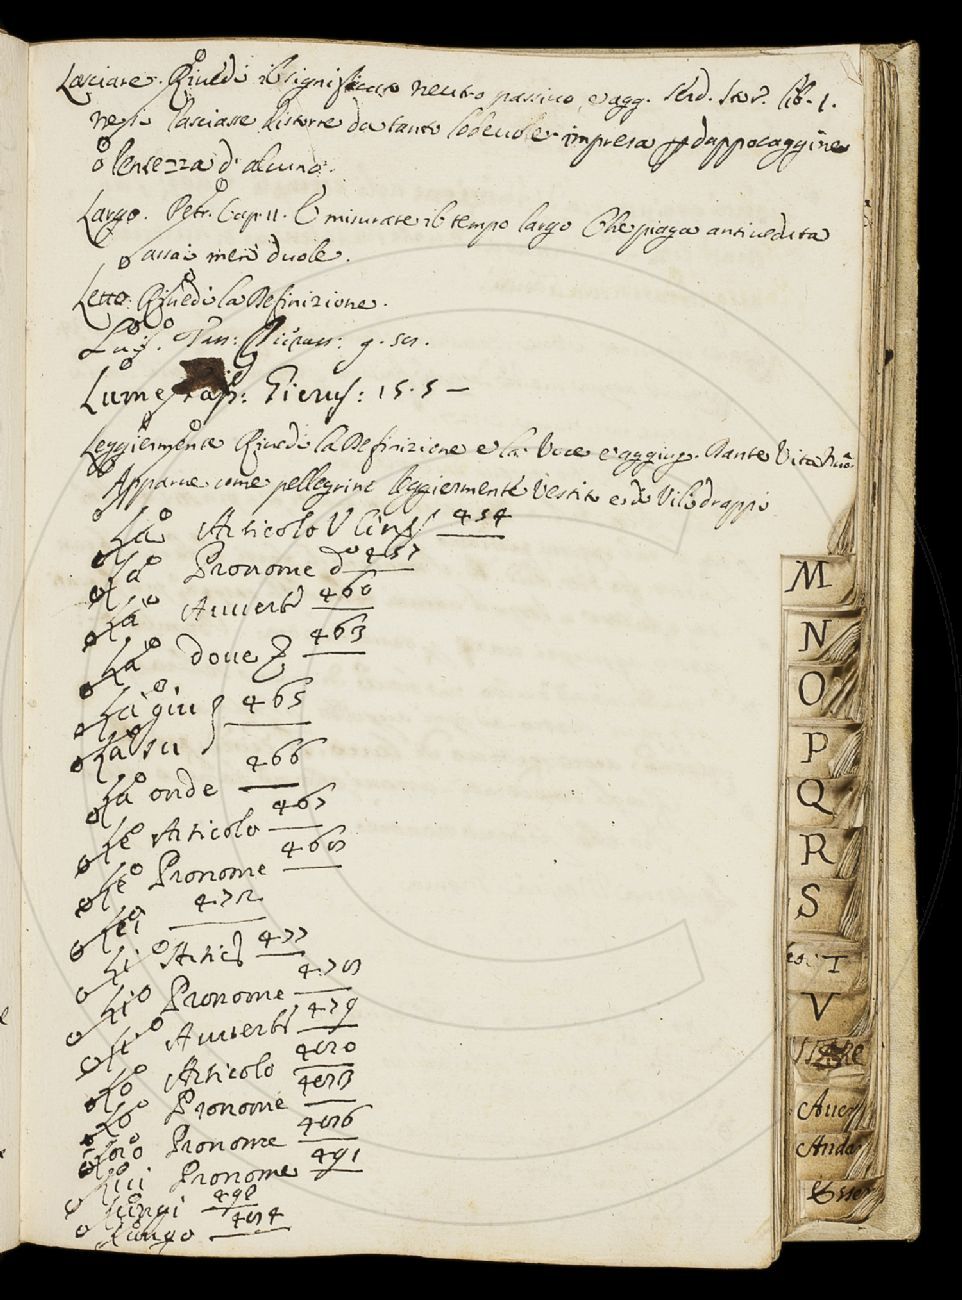 Lasciare. Rivedi il significato neutro passivo, e agg. Serd. Stor. lib. 1.
ne si lasciasse distorre da tanto lodevole impresa p dappocaggine
o lentezza d'alcuno.
Largo. Petr. Cap. 11. E misurare il tempo largo Che piaga antiveduta
assai men duole.
Letto. Rivedi la Definizione.
Lume Tass: Gierus: 15. 5 —
Leggiermente Rivedi la Definizione e la Voce e aggiug. Dante Vita
Apparve come pellegrino leggiermente vestito e di vili drappi
La Articolo V 454
La Pronome d.o 457
La Avverb 460
La dove 463
La giu } 465
La su
La onde 466
Le Articolo 467
Le Pronome 468
Lei 472
Li Artic 477
Li Pronome 478
Li Avverb 479
Lo Articolo 480
Lo Pronome 483
Loro Pronome 486
Lui Pronome 491
Lungi
Lungo 494
M
N
O
P
Q
R
S
T
V
Aver
Anda
Esser